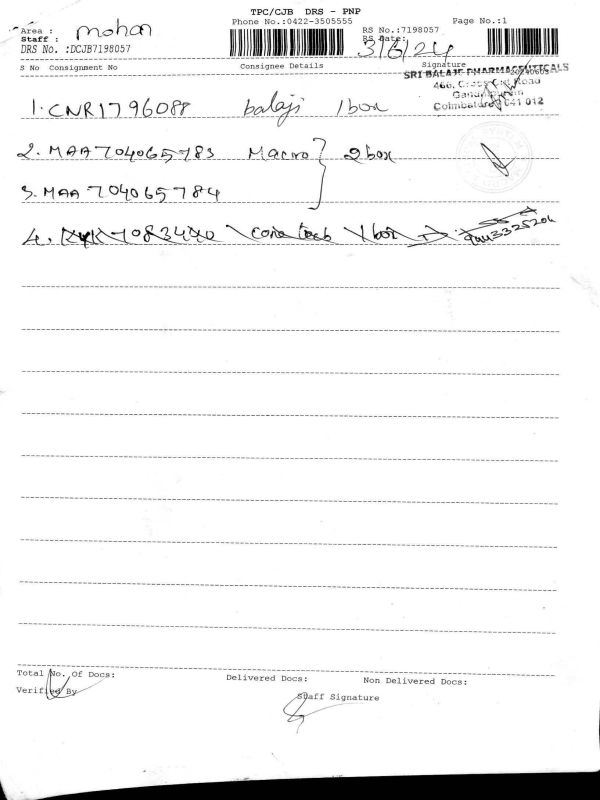 TPC/CJB DRS - PNP
Phone No.:0422-3505555 Page No.:1
Area :
Staff : mohan
RS No.:7198057
RS Date: 3/6/24
DRS No. :DCJB7198057
S No Consignment No Consignee Details Signature
SRI BALAJI PHARMACEUTICALS
466, Cross Cut Road
Gandhipuram
Coimbatore 641 012
1. CNR1796088 balaji 1 box
2. MAA704065783 Macro 2 box
3. MAA704065784
4. 1 box
Total No. Of Docs: Delivered Docs: Non Delivered Docs:
Verified By Staff Signature